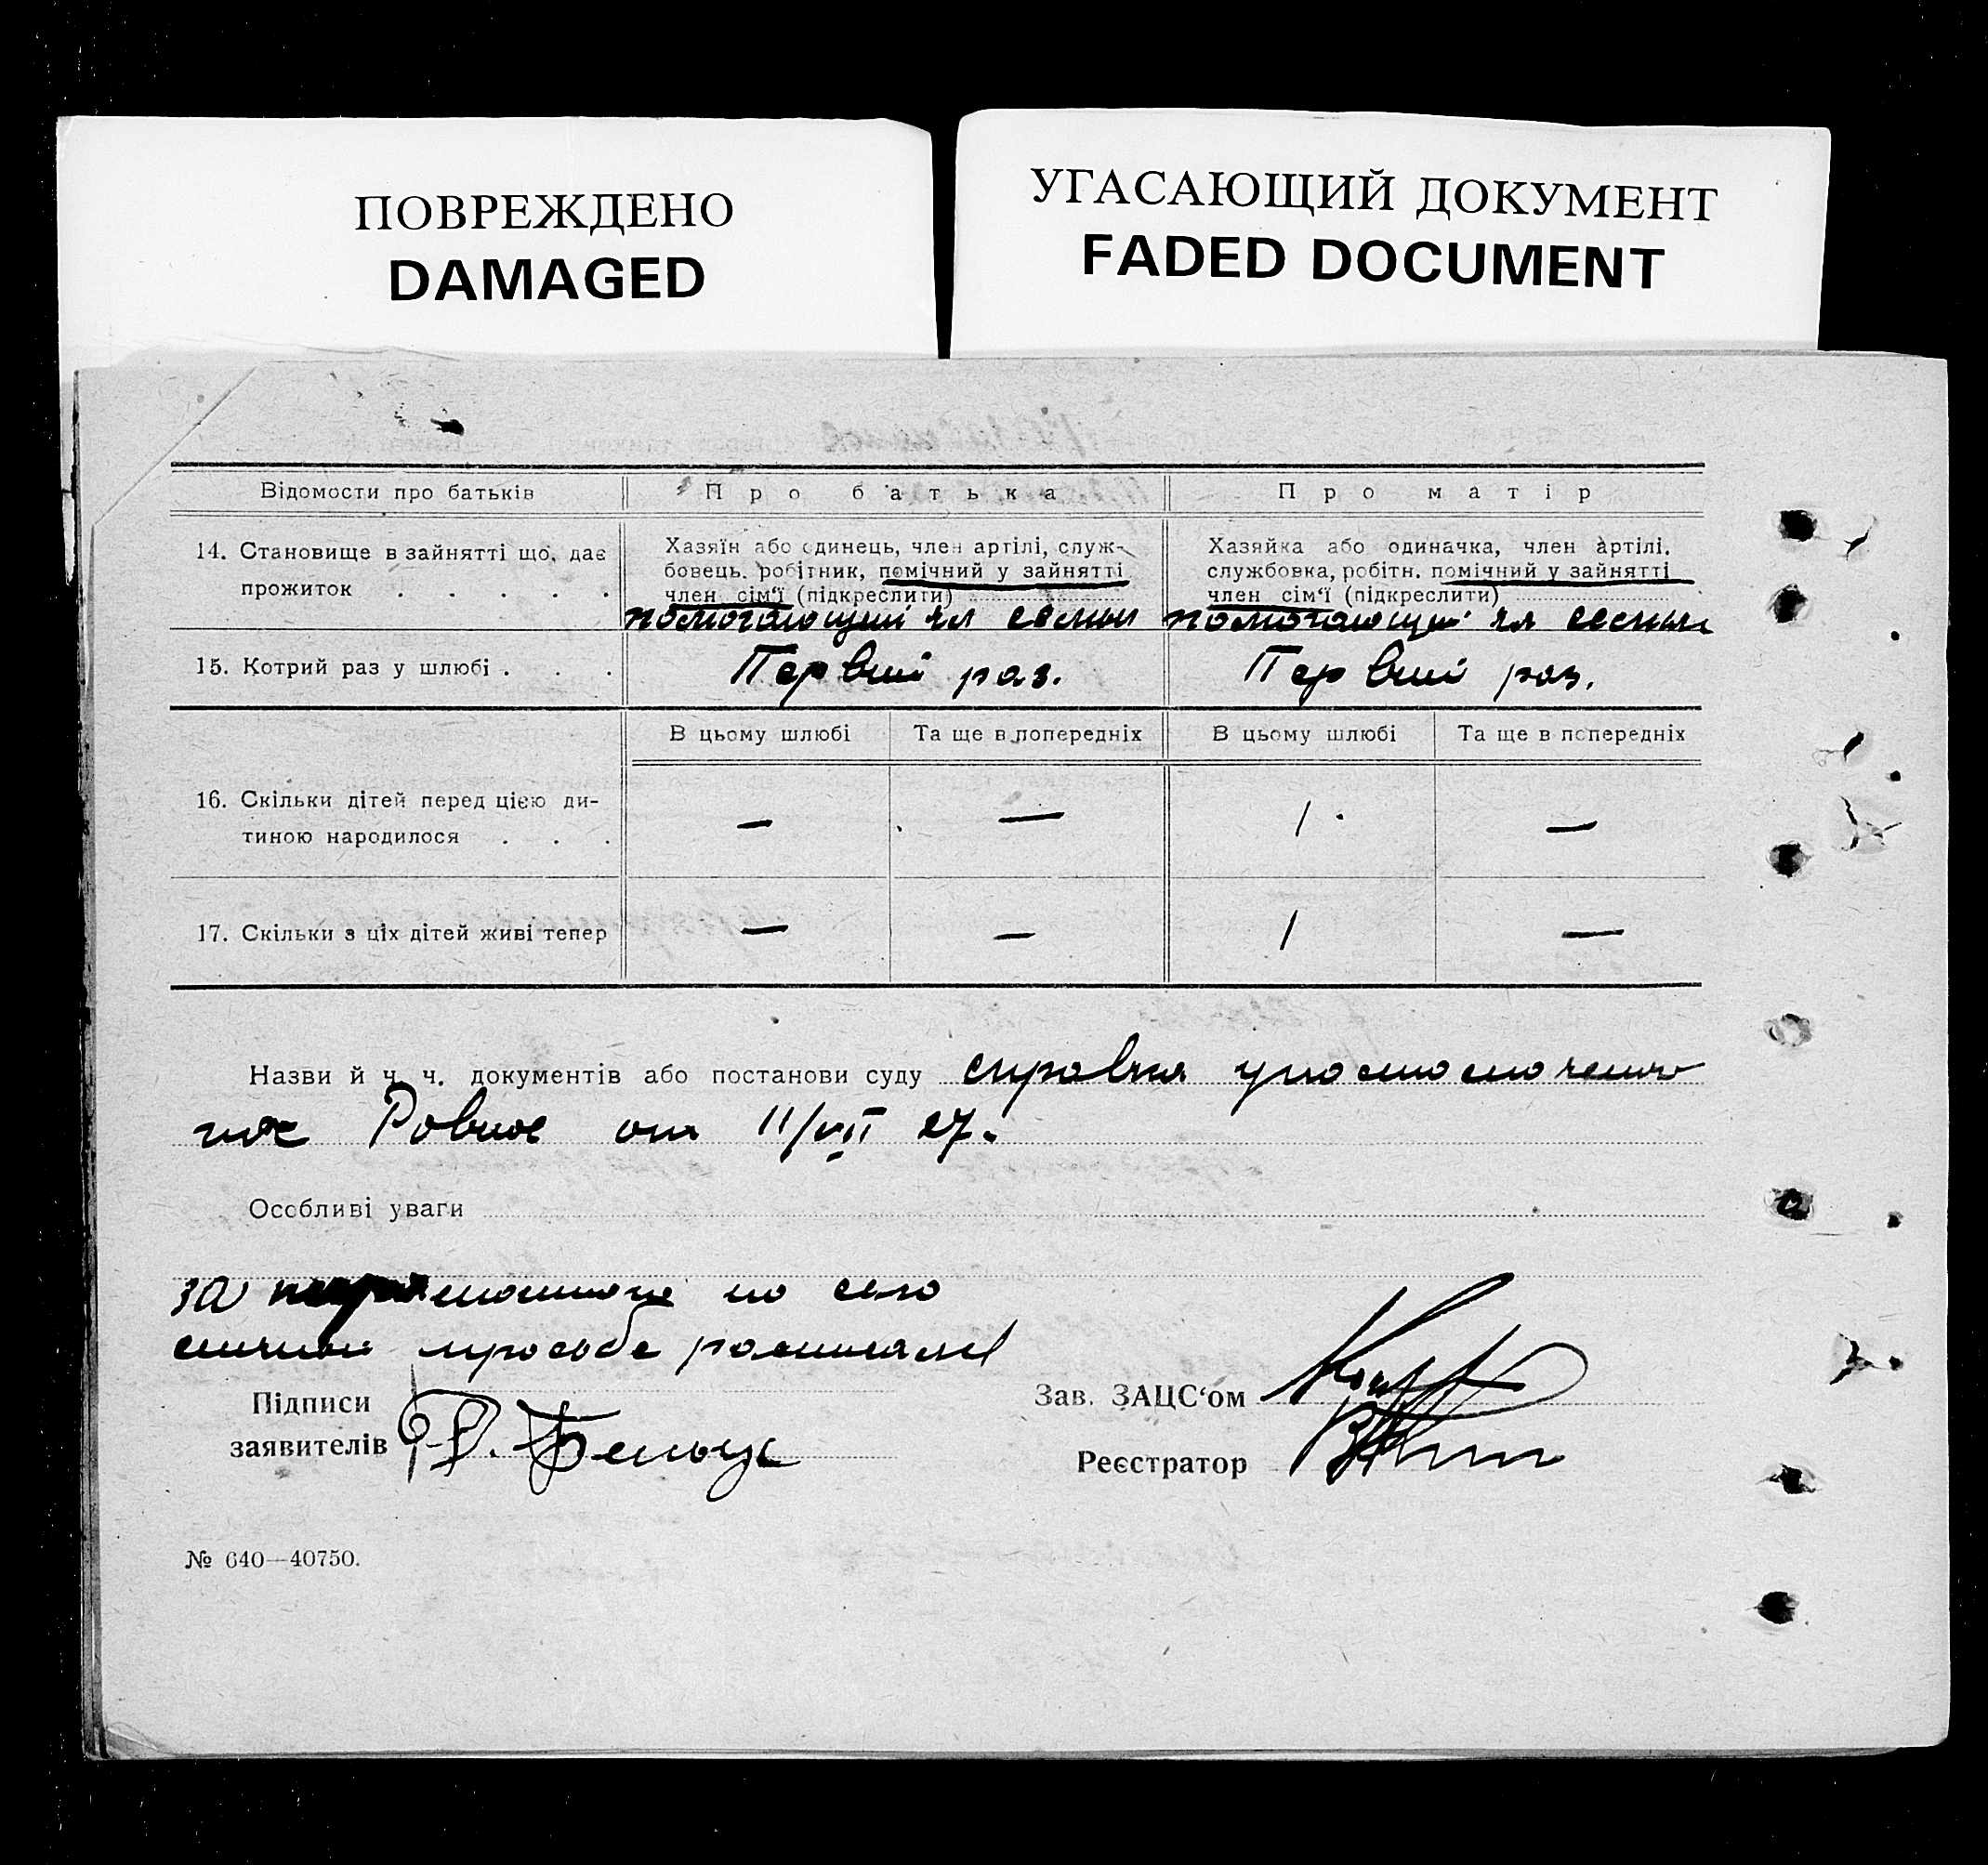 ПОВРЕЖДЕНО
DAMAGED
УГАСАЮЩИЙ ДОКУМЕНТ
FADED DOCUMENT
Відомости про батьків
Про батька
Про матір
14. Становище в зайнятті що, дає
прожиток . . . . .
Хазяїн або одинець, член артілі, служ-
бовець. робітник, помічний у зайнятті
член сім'ї (підкреслити)
помогающий чл семьи
Хазяйка або одиначка, член артілі.
службовка, робітн. помічний у зайнятті
член сім'ї (підкреслити)
помогающий чл семьи
15. Котрий раз у шлюбі . . .
Первий раз.
Первий раз.
В цьому шлюбі
Та ще в попередніх
В цьому шлюбі
Та ще в попередніх
16. Скільки дітей перед цією ди-
тиною народилося . . .
—
—
1
—
17. Скільки з ціх дітей живі тепер
—
—
1
—
Назви й ч. ч. документів або постанови суду справка
Ровное от 11/VII 27.
Особливі уваги
за по его
личной просьбе
Підписи
заявителів
Зав. ЗАЦС'ом
Реєстратор
№ 640—40750.